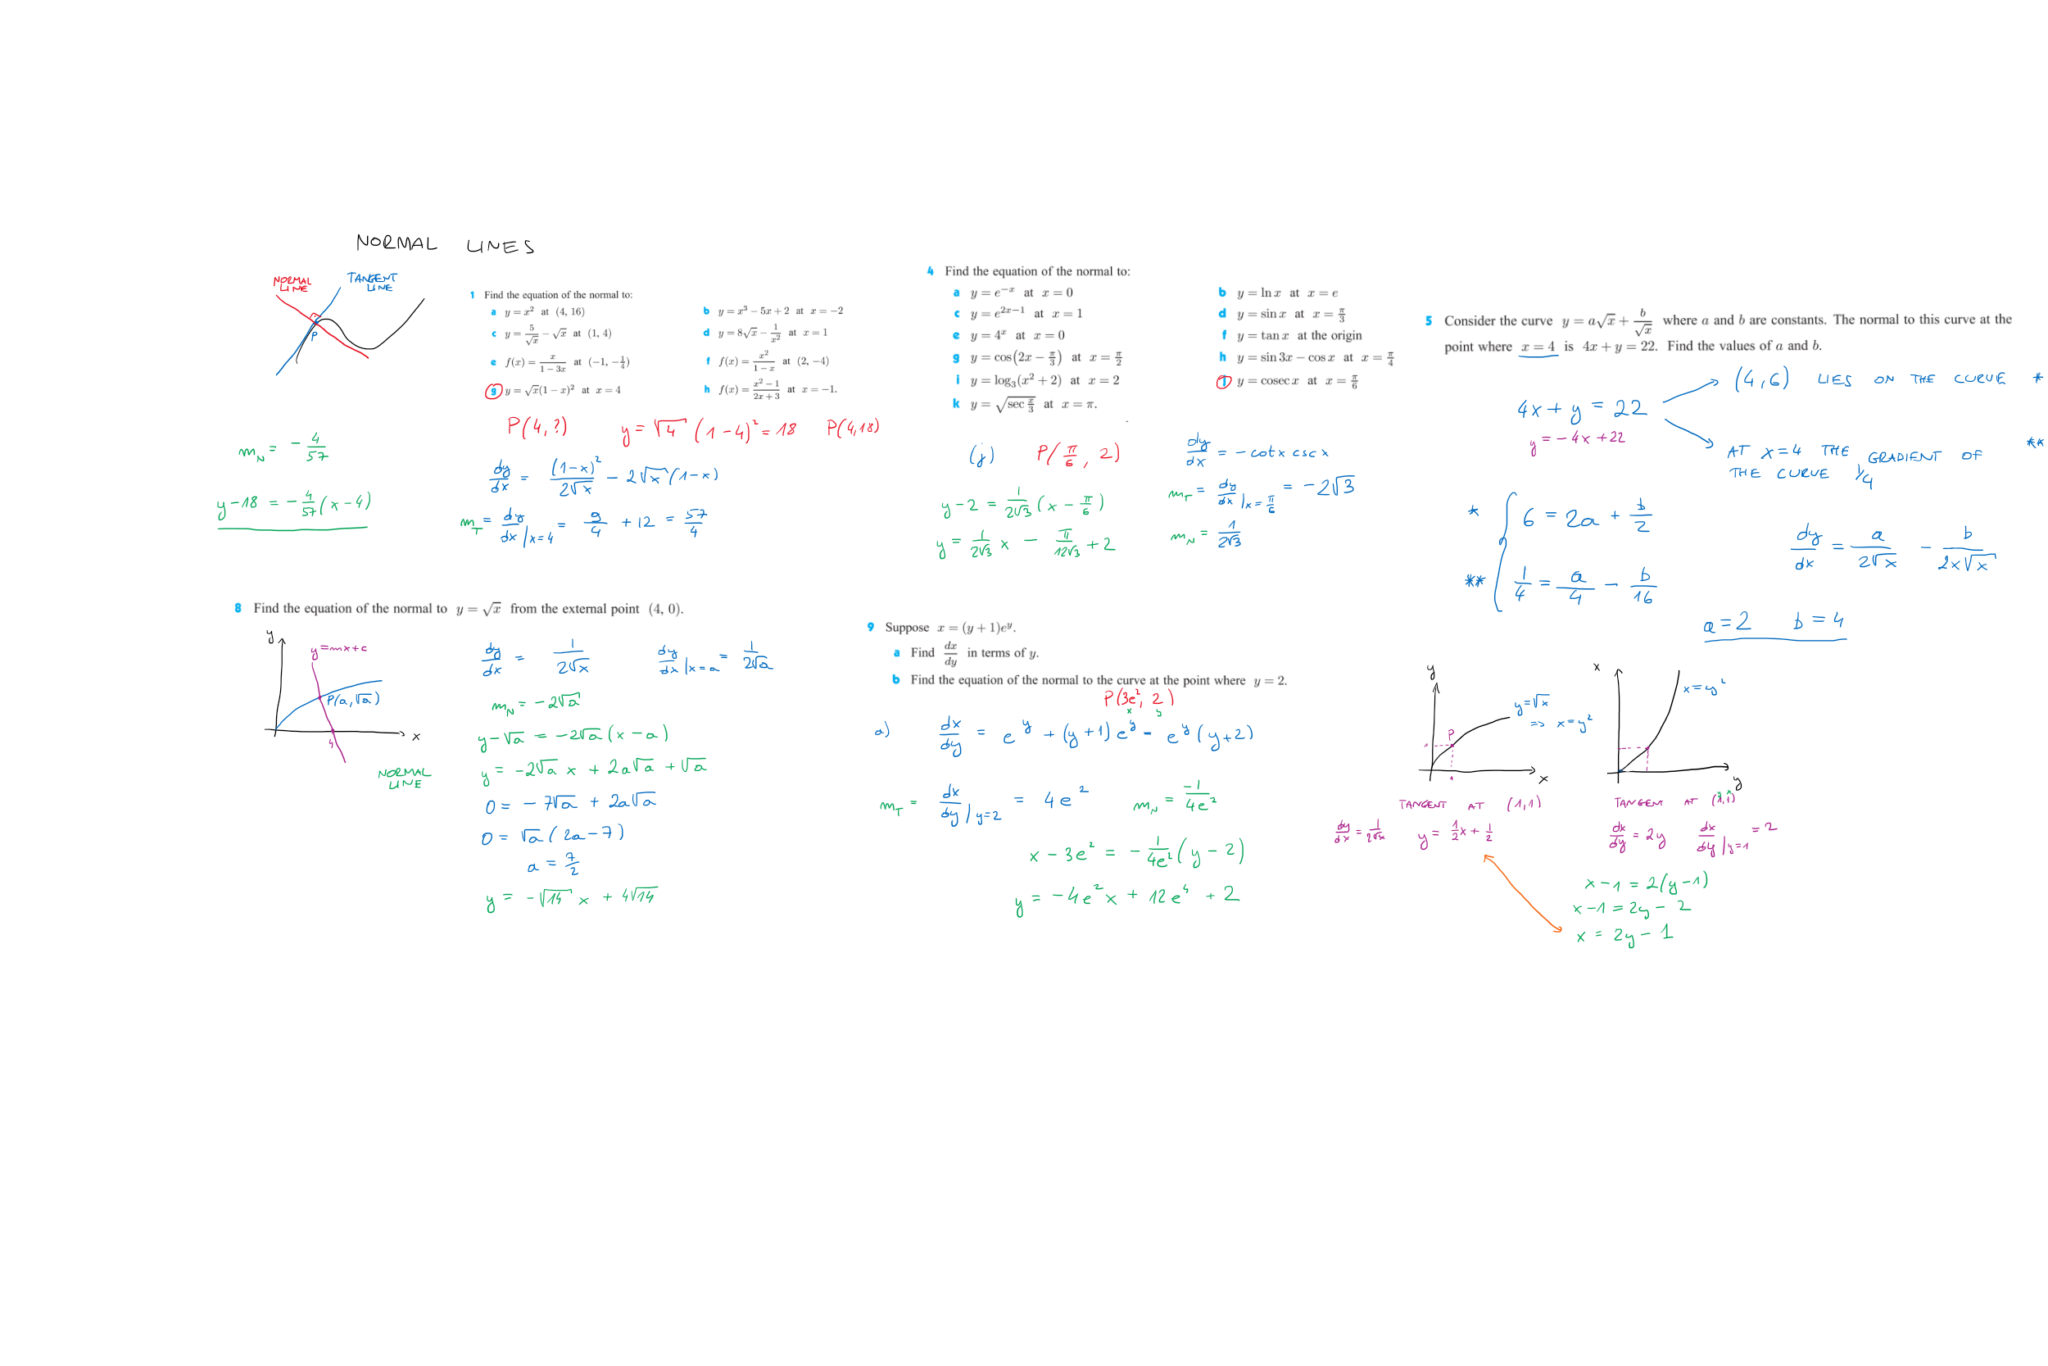 NORMAL LINES
NORMAL LINE
TANGENT LINE
P
1 Find the equation of the normal to:
a y = x² at (4, 16)
b y = x³ − 5x + 2 at x = −2
c y = 5/√x − √x at (1, 4)
d y = 8√x − 1/x² at x = 1
e f(x) = x/(1 − 3x) at (−1, −1/4)
f f(x) = x²/(1 − x) at (2, −4)
g y = √x(1 − x)² at x = 4
h f(x) = (x² − 1)/(2x + 3) at x = −1.
P(4,?) y = √4 (1−4)² = 18 P(4,18)
dy/dx = (1−x)²/2√x − 2√x (1−x)
m_T = dy/dx |x=4 = 9/4 + 12 = 57/4
m_N = −4/57
y−18 = −4/57 (x−4)
4 Find the equation of the normal to:
a y = e^−x at x = 0
b y = ln x at x = e
c y = e^(2x−1) at x = 1
d y = sin x at x = π/3
e y = 4^x at x = 0
f y = tan x at the origin
g y = cos(2x − π/3) at x = π/2
h y = sin 3x − cos x at x = π/4
i y = log₃(x² + 2) at x = 2
j y = cosec x at x = π/6
k y = √(sec x/3) at x = π.
(j) P(π/6, 2)
dy/dx = − cot x csc x
m_T = dy/dx |x=π/6 = −2√3
m_N = 1/2√3
y−2 = 1/2√3 (x − π/6)
y = 1/2√3 x − π/12√3 + 2
5 Consider the curve y = a√x + b/√x where a and b are constants. The normal to this curve at the
point where x = 4 is 4x + y = 22. Find the values of a and b.
4x + y = 22
y = −4x + 22
(4,6) LIES ON THE CURVE *
AT x=4 THE GRADIENT OF **
THE CURVE 1/4
* 6 = 2a + b/2
** 1/4 = a/4 − b/16
dy/dx = a/2√x − b/2x√x
a=2 b=4
8 Find the equation of the normal to y = √x from the external point (4, 0).
y
y=mx+c
P(a,√a)
4
x
NORMAL LINE
dy/dx = 1/2√x dy/dx |x=a = 1/2√a
m_N = −2√a
y−√a = −2√a (x−a)
y = −2√a x + 2a√a + √a
0 = −7√a + 2a√a
0 = √a (2a−7)
a = 7/2
y = −√14 x + 4√14
9 Suppose x = (y + 1)e^y.
a Find dx/dy in terms of y.
b Find the equation of the normal to the curve at the point where y = 2.
P(3e², 2)
x y
a) dx/dy = e^y + (y+1)e^y = e^y (y+2)
m_T = dx/dy |y=2 = 4e² m_N = −1/4e²
x − 3e² = −1/4e² (y−2)
y = −4e²x + 12e⁴ + 2
y
P
y=√x
⇒ x=y²
x
TANGENT AT (1,1)
dy/dx = 1/2√x y = 1/2 x + 1/2
x
x=y²
y
TANGENT AT (1,1)
dx/dy = 2y dx/dy |y=1 = 2
x−1 = 2(y−1)
x−1 = 2y − 2
x = 2y − 1